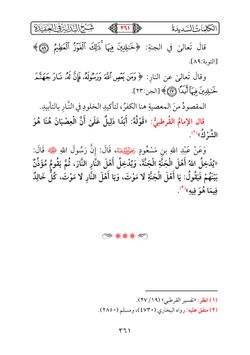 الكلمات السديدة ٣٦١ شرح البداية في العقيدة
قالَ تَعالى في الجنةِ: ﴿خَٰلِدِينَ فِيهَا ذَٰلِكَ ٱلْفَوْزُ ٱلْعَظِيمُ ٨٩﴾
[التوبة: ٨٩].
وقالَ تَعالى عن النارِ: ﴿وَمَن يَعْصِ ٱللَّهَ وَرَسُولَهُۥ فَإِنَّ لَهُۥ نَارَ جَهَنَّمَ
خَٰلِدِينَ فِيهَآ أَبَدًا ٢٣﴾ [الجن: ٢٣].
المقصودُ منَ المعصيةِ هنا الكفرُ، لتأكيدِ الخلودِ في النَّارِ بالتأبيدِ.
قال الإمامُ القُرطبيُّ: «قَوْلُهُ: أَبَدًا دَلِيلٌ عَلَى أَنَّ الْعِصْيَانَ هُنَا هُوَ
الشِّرْكُ»(١).
وَعَنْ عَبْدِ اللهِ بنِ مَسْعُودٍ رضي الله عنه قَالَ: إِنَّ رَسُولَ اللهِ ﷺ قَالَ:
«يُدْخِلُ اللهُ أَهْلَ الْجَنَّةِ الْجَنَّةَ، وَيُدْخِلُ أَهْلَ النَّارِ النَّارَ، ثُمَّ يَقُومُ مُؤَذِّنٌ
بَيْنَهُمْ فَيَقُولُ: يَا أَهْلَ الْجَنَّةِ لَا مَوْتَ، وَيَا أَهْلَ النَّارِ لَا مَوْتَ، كُلٌّ خَالِدٌ
فِيمَا هُوَ فِيهِ»(٢).
(١) انظر: «تفسير القرطبي» (١٩/ ٢٧).
(٢) متفق عليه: رواه البخاري (٤٧٣٠)، ومسلم (٢٨٥٠).
٣٦١